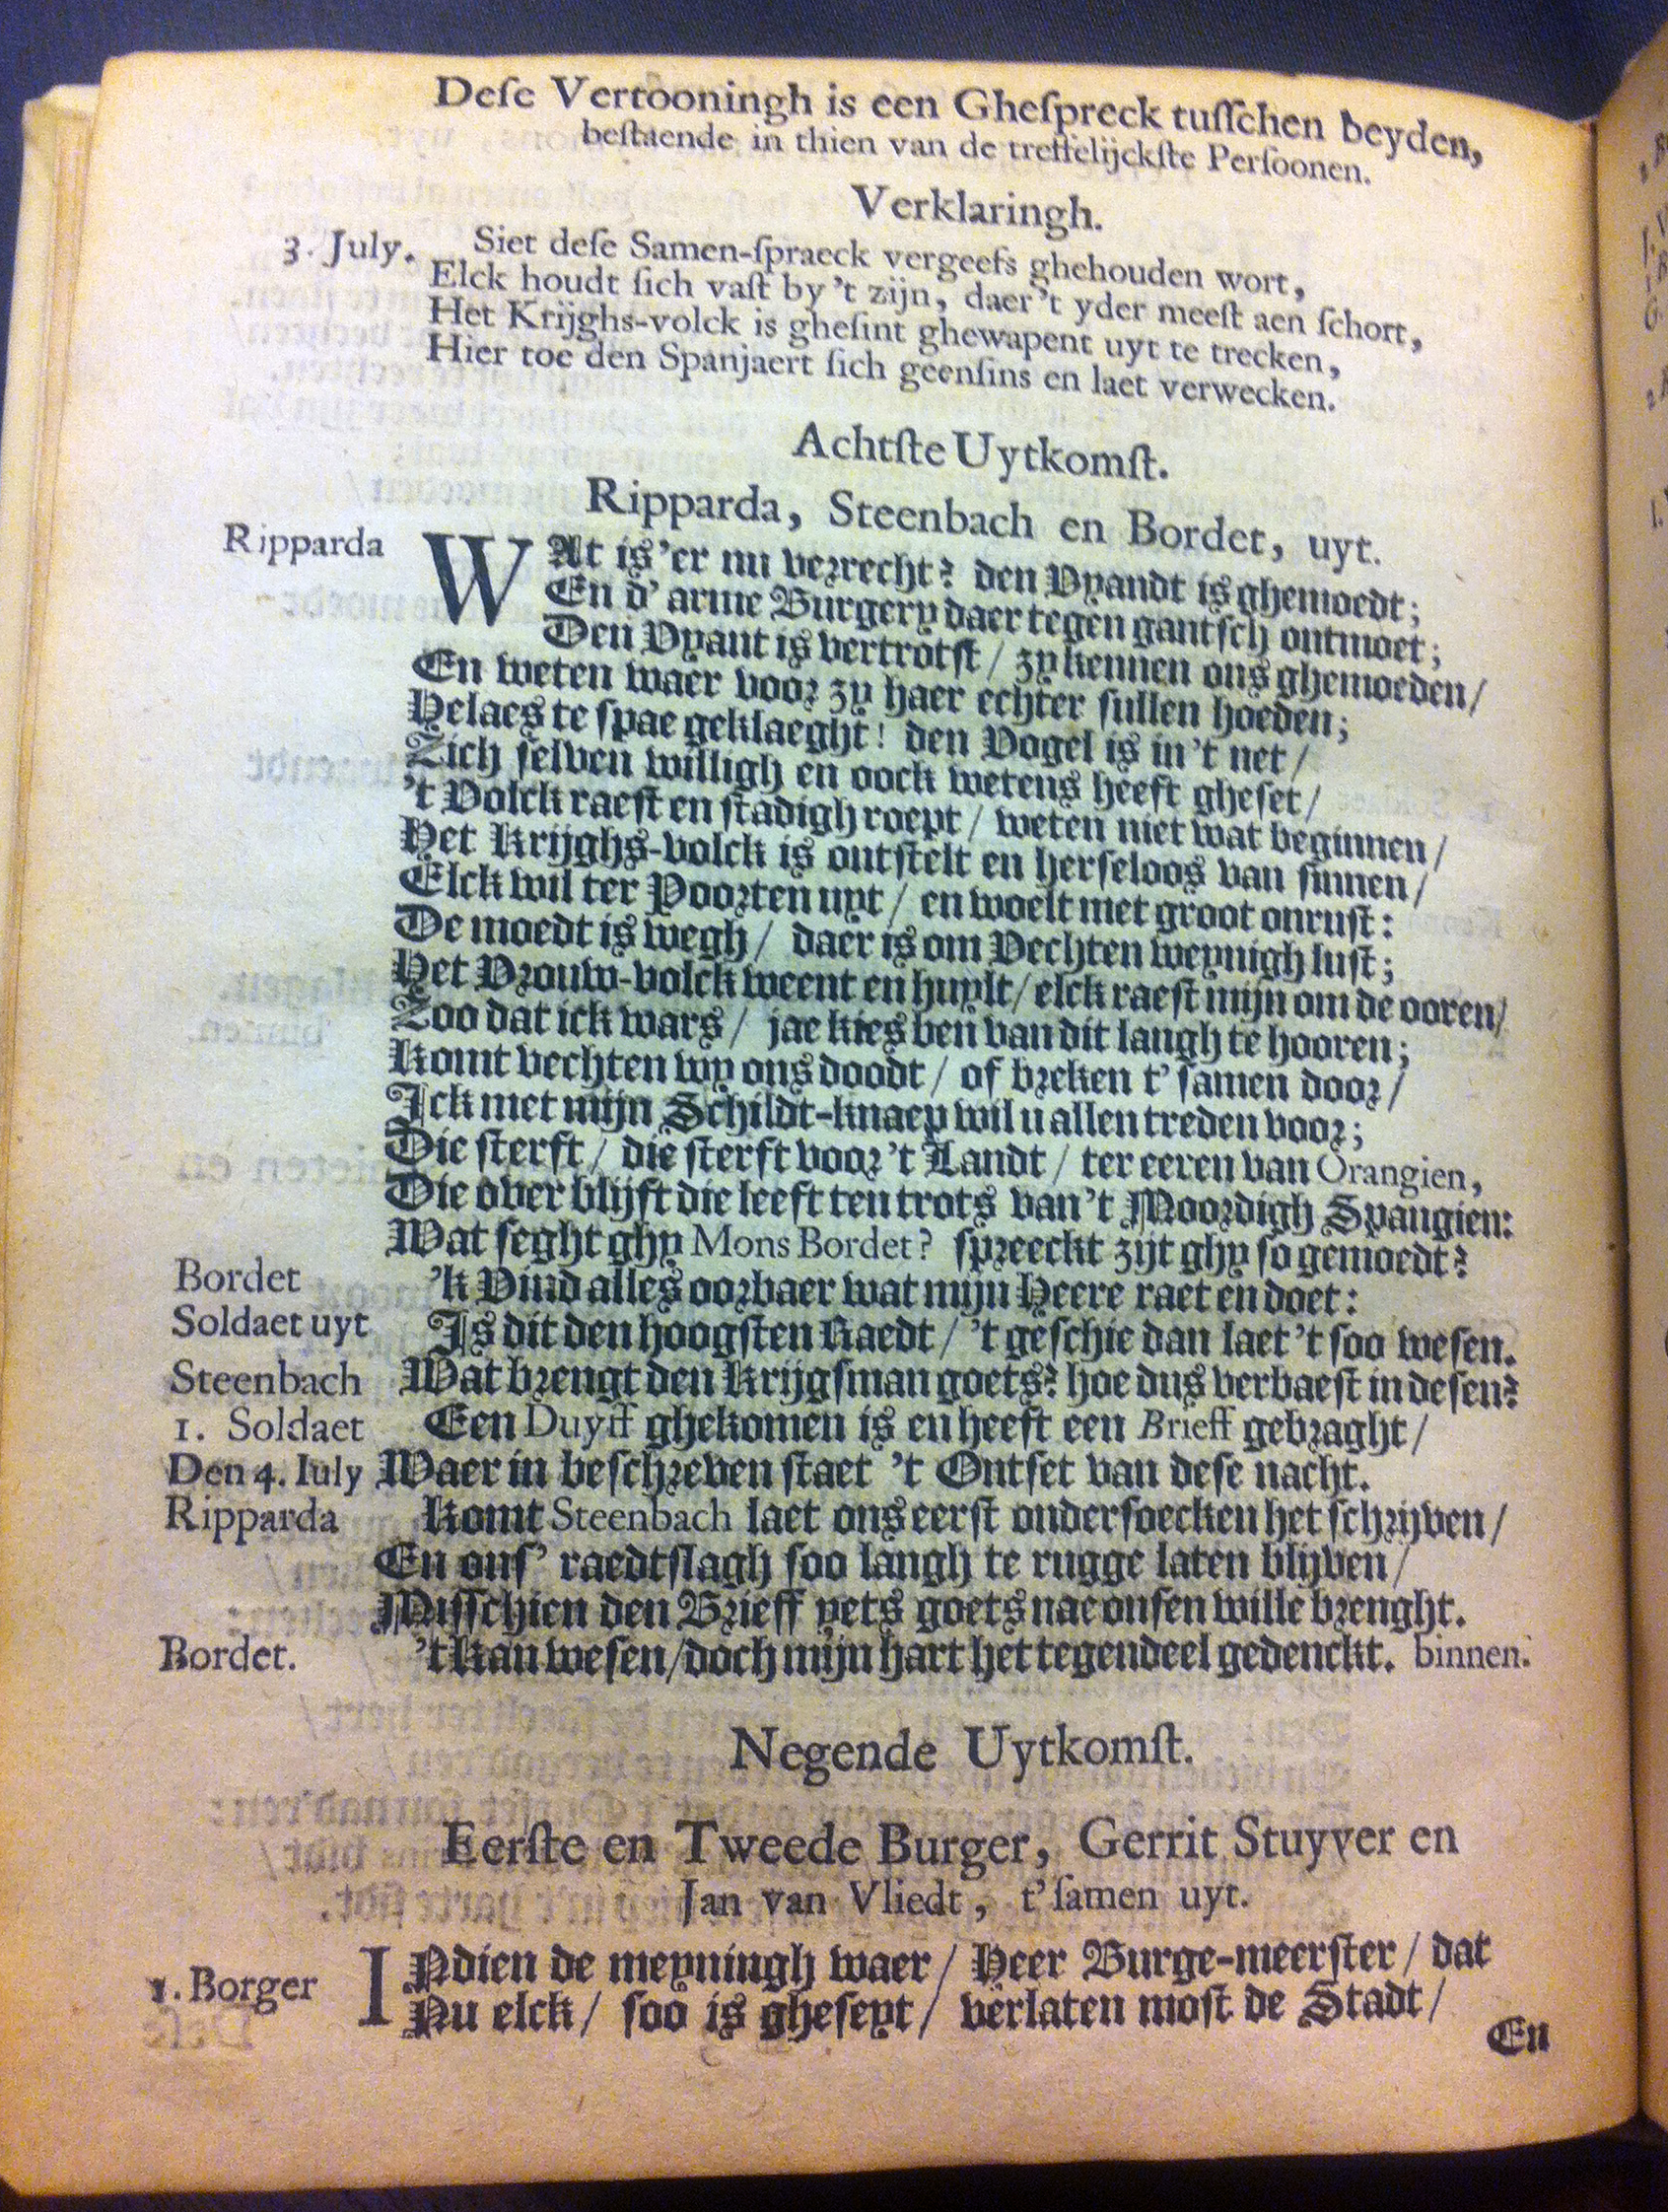 Deſe Vertooningh is een Gheſpreck tuſſchen beyden,
beſtaende in thien van de treffelijckſte Perſoonen.
Verklaringh.
3. July. Siet deſe Samen-ſpraeck vergeefs ghehouden wort,
Elck houdt ſich vaſt by 't zijn, daer 't yder meeſt aen ſchort,
Het Krijghs-volck is gheſint ghewapent uyt te trecken,
Hier toe den Spanjaert ſich geenſins en laet verwecken.
Achtſte Uytkomſt.
Ripparda, Steenbach en Bordet, uyt.
Ripparda WAt is 'er nu verrecht? den Vyandt is ghemoedt;
En d' arme Burgery daer tegen gantſch ontmoet;
Den Vyant is vertrotſt / zy kennen ons ghemoeden /
En weten waer voor zy haer echter ſullen hoeden;
Helaes te ſpae geklaeght! den Vogel is in 't net /
Zich ſelven willigh en oock wetens heeft gheſet /
't Volck raeſt en ſtadigh roept / weten niet wat beginnen /
Het Krijghs-volck is ontſtelt en herſeloos van ſinnen /
Elck wil ter Poorten uyt / en woelt met groot onruſt:
De moedt is wegh / daer is om Vechten weynigh luſt;
Het Vrouw-volck weent en huylt / elck raeſt mijn om de ooren /
Zoo dat ick wars / jae kies ben van dit langh te hooren;
Komt vechten wy ons doodt / of breken t' ſamen door /
Ick met mijn Schildt-knaep wil u allen treden voor;
Die ſterft / die ſterft voor 't Landt / ter eeren van Orangien,
Die over blijft die leeft ten trots van 't Moordigh Spangien:
Wat ſeght ghy Mons Bordet? ſpreeckt zijt ghy ſo gemoedt?
Bordet 'k Vind alles oorbaer wat mijn Heere raet en doet:
Soldaet uyt Is dit den hoogſten Raedt / 't geſchie dan laet 't ſoo weſen.
Steenbach Wat brengt den Krijgſman goets? hoe dus verbaeſt in deſen?
1. Soldaet Een Duyff ghekomen is en heeft een Brieff gebraght /
Den 4. Iuly Waer in beſchreven ſtaet 't Ontſet van deſe nacht.
Ripparda Komt Steenbach laet ons eerſt onderſoecken het ſchrijven /
En onſ' raedtſlagh ſoo langh te rugge laten blijven /
Miſſchien den Brieff yets goets nae onſen wille brenght.
Bordet. 't Kan weſen / doch mijn hart het tegendeel gedenckt. binnen.
Negende Uytkomſt.
Eerſte en Tweede Burger, Gerrit Stuyver en
Jan van Vliedt, t' ſamen uyt.
1. Borger INdien de meyningh waer / Heer Burge-meerſter / dat
Nu elck / ſoo is gheſeyt / verlaten moſt de Stadt /
En